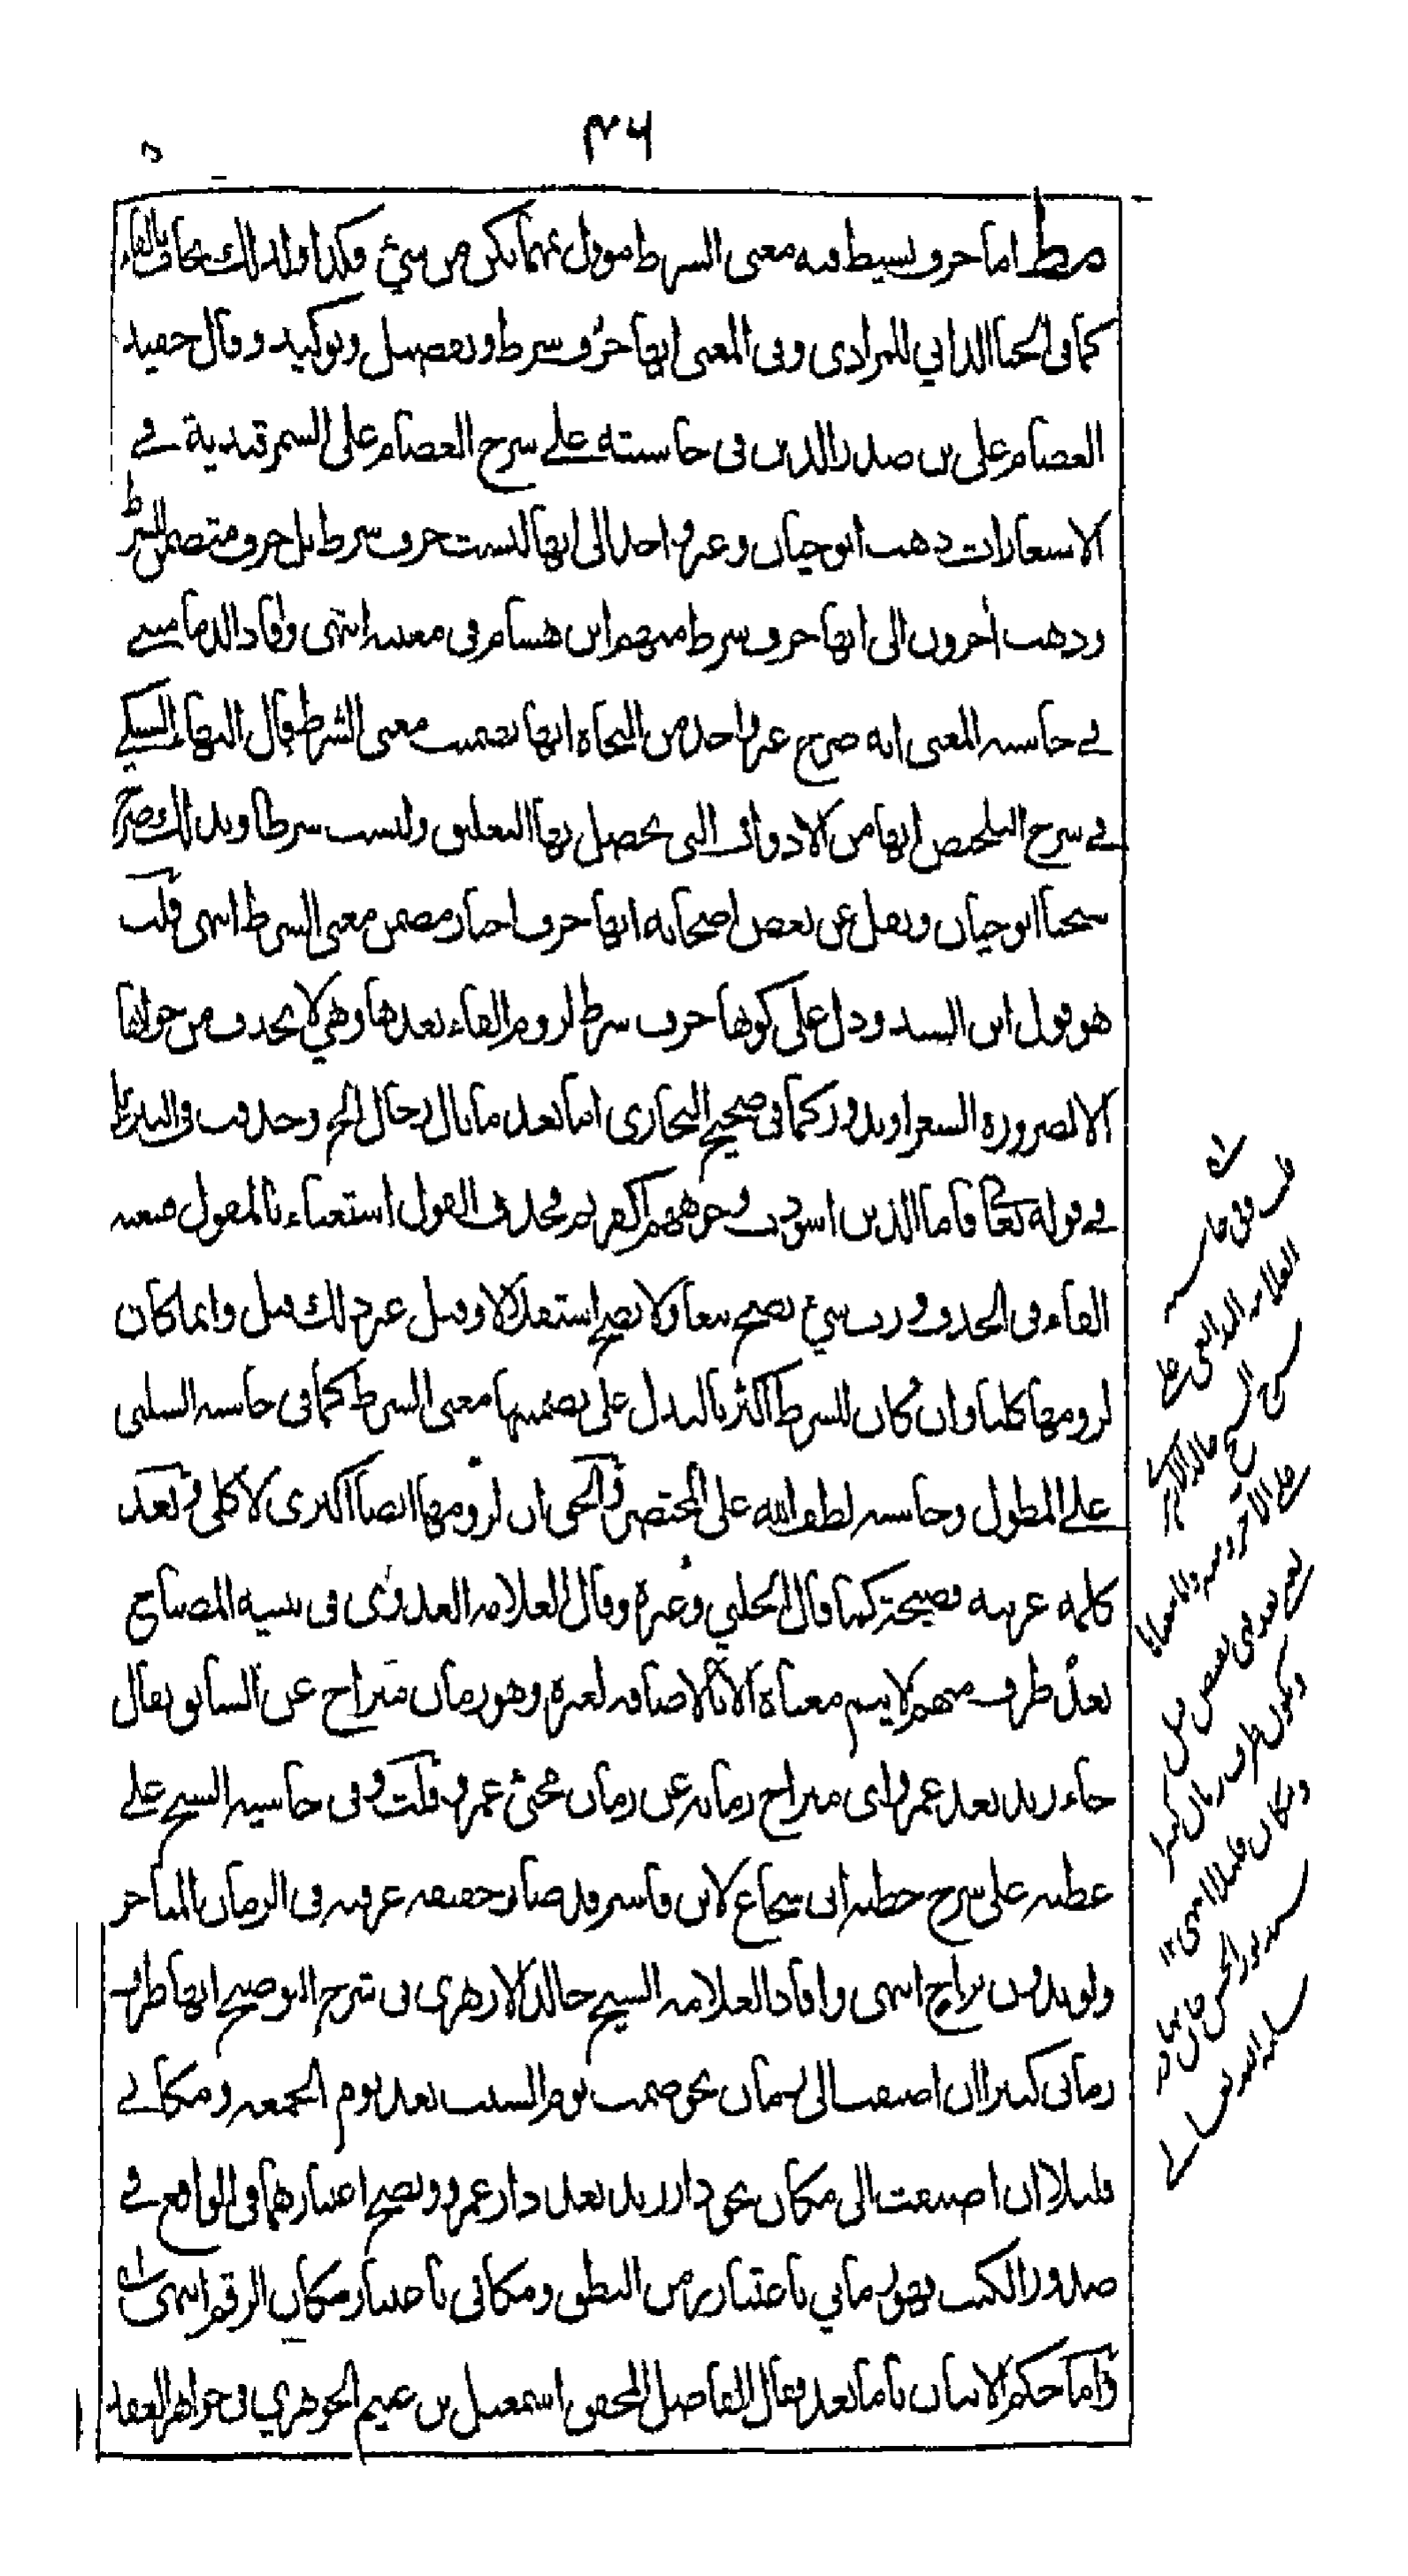 ٣٦
مطر اما حرف بسيط فيه معنى الشرط مؤول بمهما يكن من شيء فكذا ولذلك يجاب بالفاء
كما في الجنا الداني للمرادي وفي المغني انها حرف شرط وتفصيل وتوكيد وقال حفيد
العصام علي بن صدر الدين في حاشيته على شرح العصام على السمرقندية في
الاستعارات ذهب ابو حيان وغير واحد الى انها ليست حرف شرط بل حرف متضمن للشرط
وذهب اخرون الى انها حرف شرط منهم ابن هشام في مغنيه انتهى وافاد الدماميني
في حاشية المغني انه صرح غير واحد من النحاة انها تضمنت معنى الشرط قال البهاء السبكي
في شرح التلخيص انها من الادوات التي يحصل بها التعليق وليست شرطا وبذلك صرح
شيخنا ابو حيان ونقل عن بعض اصحابه انها حرف اخبار مضمن معنى الشرط انتهى قلت
هو قول ابن السيد ودل على كونها حرف شرط لزوم الفاء بعدها وهي لا يحذف من جوابها
الا لضرورة الشعر او ندور كما في صحيح البخاري اما بعد ما بال رجال الخ وحذفت في التنزيل
في قوله تعالى فاما الذين اسودت وجوههم اكفرتم فحذف القول استغناء بالمقول فتبعته
الفاء في الحذف ورب شيء يصح تبعا ولا يصح استقلالا وقيل غير ذلك قيل وانما كان
لزومها كليا وان كان للشرط اكثريا ليدل على تضمنها معنى الشرط كما في حاشية السلبي
على المطول وحاشية لطف الله على المختصر والحق ان لزومها ايضا اكثري لا كلي وبعد
كلمة عربية فصيحة كما قال الحلبي وغيره وقال العلامة العدوي في تنبيه المصابيح
بعد ظرف مبهم لا يتم معناه الا بالاضافة لغيره وهو زمان متراخ عن السابق يقال
جاء زيد بعد عمرو اي متراخ زمانه عن زمان مجئ عمرو قلت وفي حاشية الشيخ علي
عطية على شرح خطبة ابي شجاع لابن قاسم قد صار حقيقة عرفية في الزمان المتاخر
ولو بدون تراخ انتهى وافاد العلامة الشيخ خالد الازهري في شرح التوضيح انها ظرف
زماني كثيرا ان اضيفت الى زمان نحو صمت يوم السبت بعد يوم الجمعة ومكاني
قليلا ان اضيفت الى مكان نحو دار زيد بعد دار عمرو ويصح اعتبارهما في الواقع في
صدور الكتب فهو زماني باعتبار زمن النطق ومكاني باعتبار مكان الرقم انتهى
واما حكم الاتيان باما بعد فقال الفاضل المحقق اسمعيل بن غنيم الجوهري في جواهر العقد
العلامة